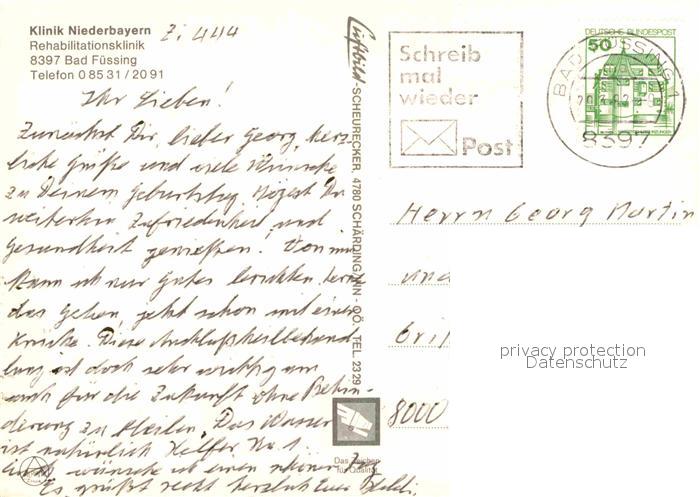 Klinik Niederbayern Zi 444
Rehabilitationsklinik
8397 Bad Füssing
Telefon 0 85 31 / 20 91
Ihr Lieben!
Zunächst Dir, lieber Georg, herz-
liche Grüße und viele Wünsche
zu Deinem Geburtstag. Mögest Du
weiterhin Zufriedenheit und
Gesundheit genießen! Von mir
kann ich nur Gutes berichten. Lerne
das Gehen jetzt schon mit einer
Krücke. Diese Anschlußheilbehand-
lung ist doch sehr wichtig um
auch für die Zukunft ohne Behin-
derung zu bleiben. Das Wasser
ist natürlich Helfer No 1.
Euch wünsche ich einen schönen
Es grüßt recht herzlich Eure
Luftbild-SCHEURECKER, 4780 SCHÄRDING/INN - OÖ. TEL. 2329
Das Zeichen
für Qualität
Schreib
mal
wieder
Post
DEUTSCHE BUNDESPOST
50
BAD FÜSSING 1
8397
Herrn Georg Martin
und
8000
privacy protection
Datenschutz